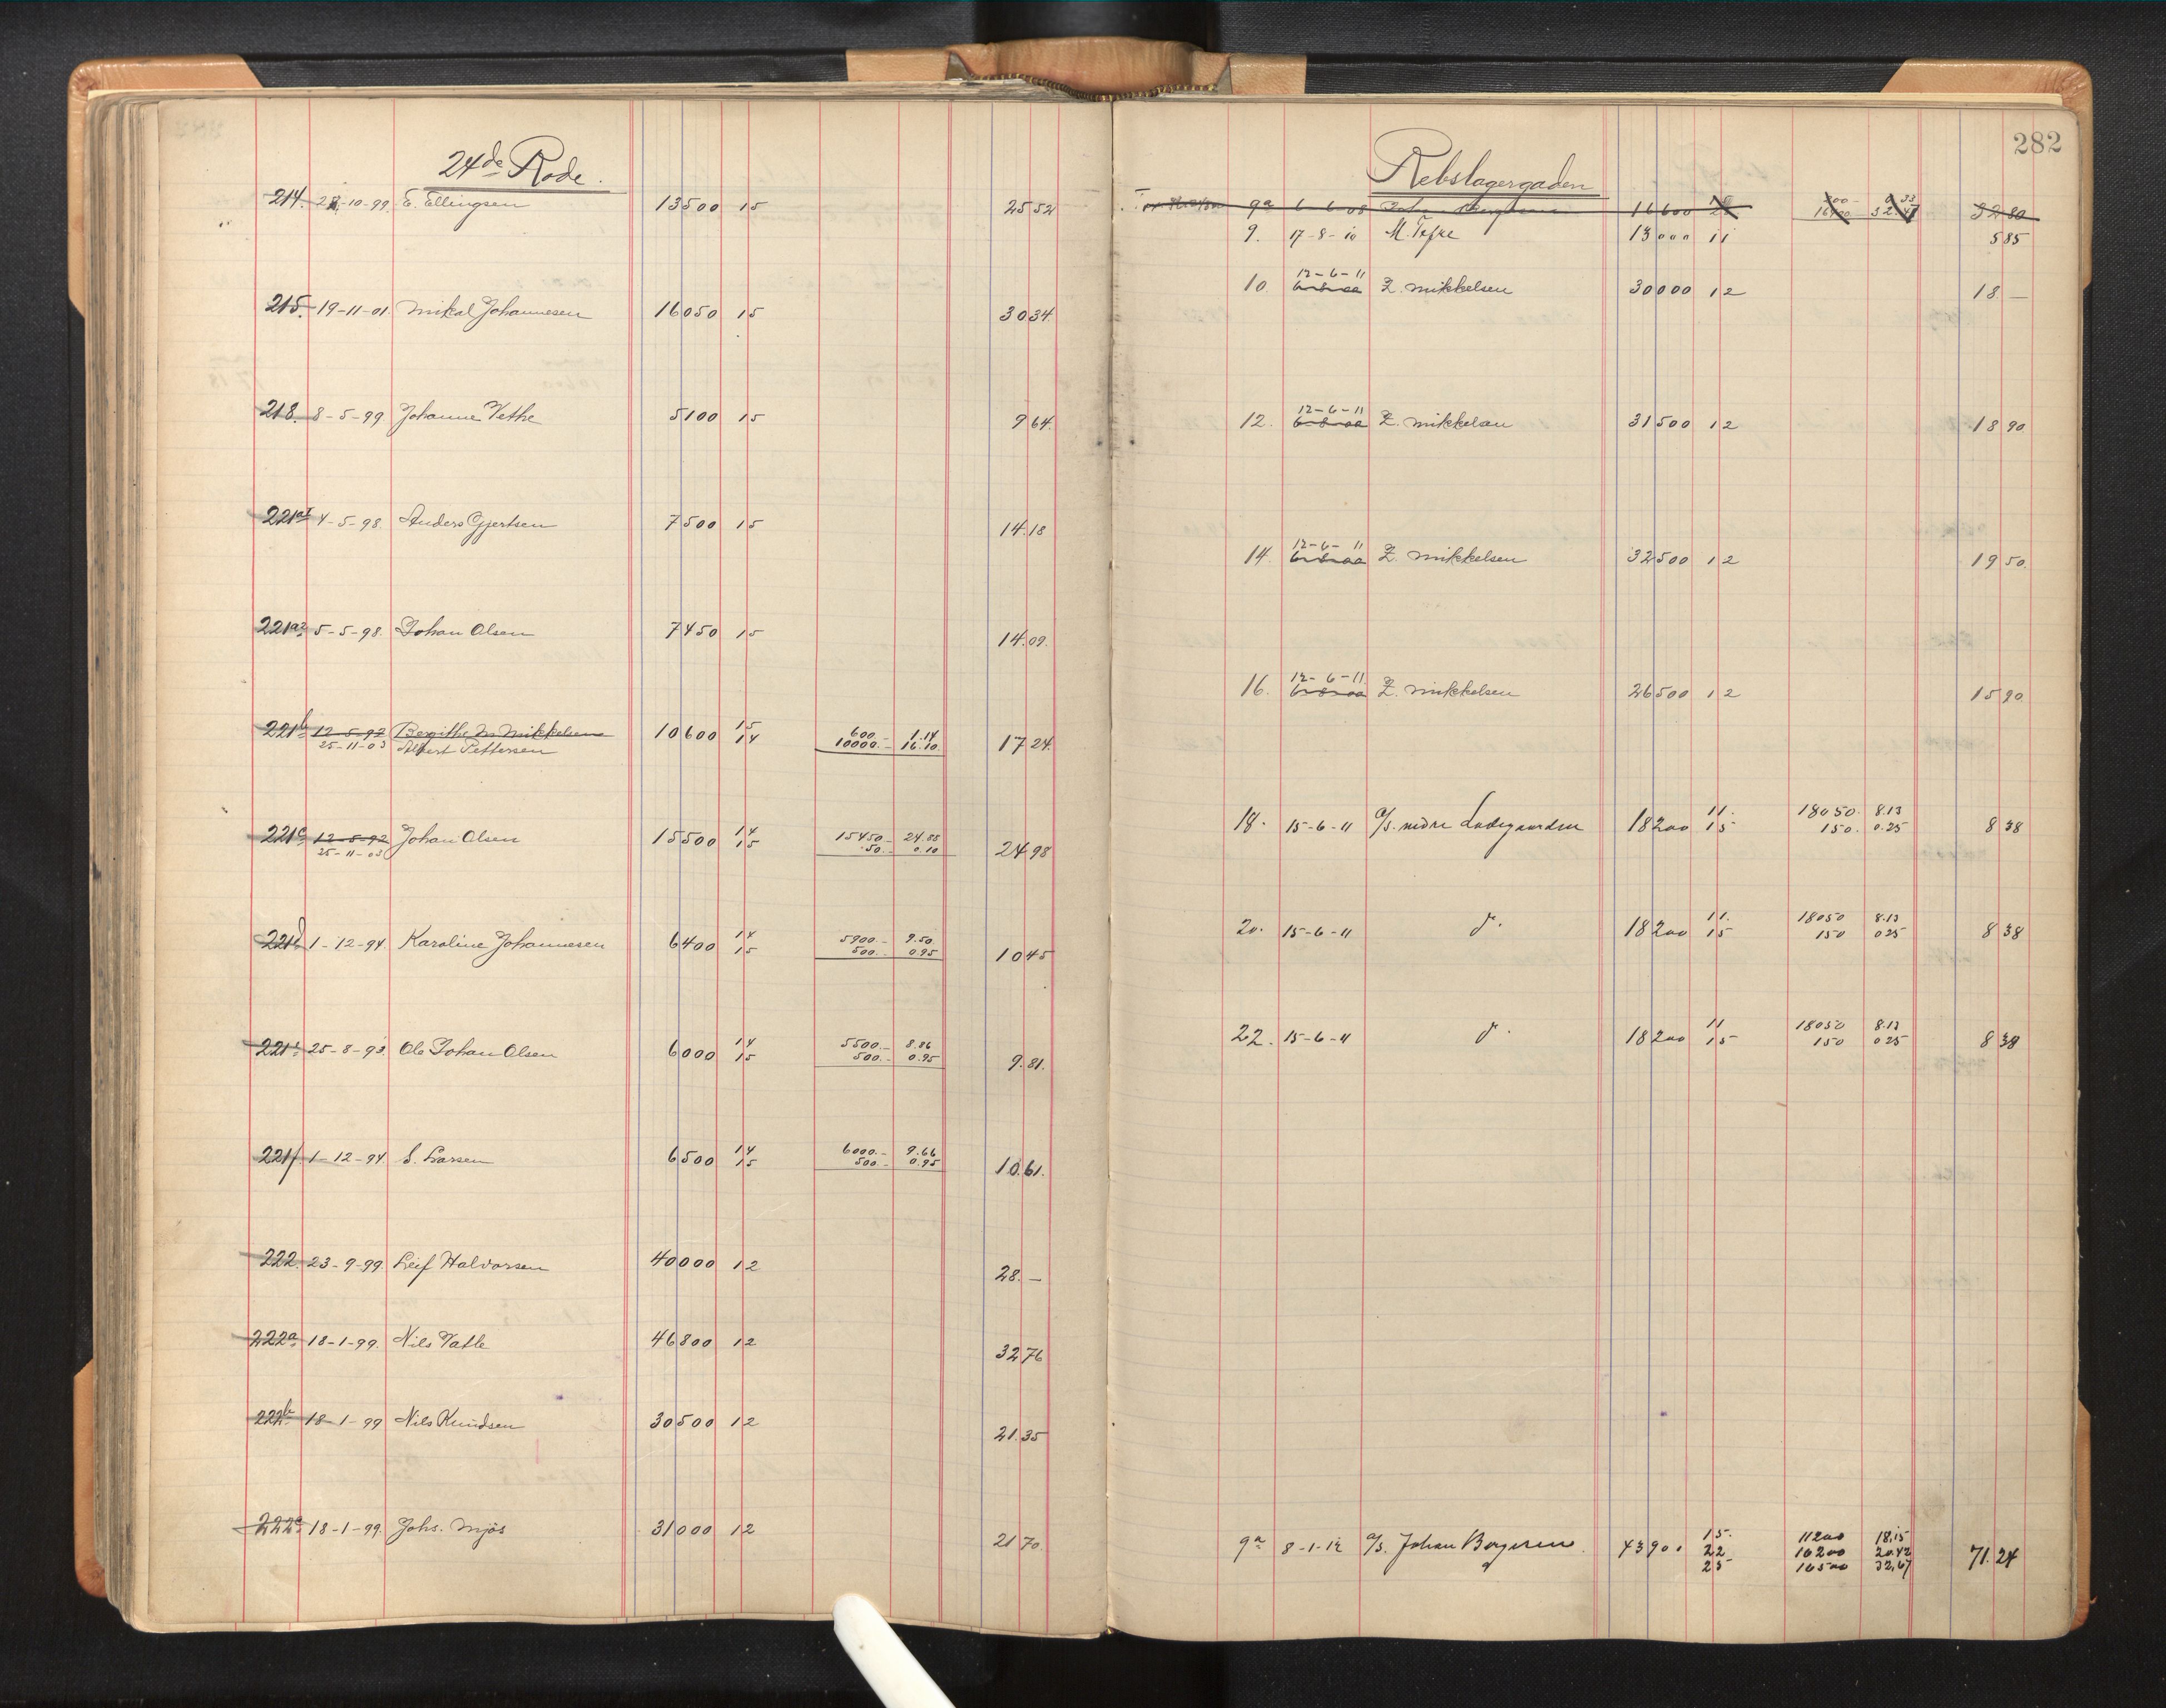 24de Rode.
214. 28-10-99. E. Ellingsen 13500 15 25 52
215. 19-11-01. Mikal Johannesen 16050 15 30 34.
218. 8-5-99. Johanne Vethe 5100 15 9 64.
221a1 4-5-98. Anders Gjertsen 7500 15 14.18
221a2 5-5-98. Johan Olsen 7450 15 14.09.
221b 12-5-92 Bergithe M. Mikkelsen 10600 15 600.- 1.14
25-11-03 Albert Pettersen 14 10000.- 16.10. 17 24.
221c 12-5-92 Johan Olsen 15500 14 15450.- 24.88
25-11-03 15 50.- 0.10 24.98
221d 1-12-94. Karoline Johannesen 6400 14 5900.- 9.50.
15 500.- 0.95 10 45
221e 25-8-93. Ole Johan Olsen 6000 14 5500.- 8.86
15 500.- 0.95 9.81.
221f 1-12-94. S. Larsen 6500 14 6000.- 9.66
15 500.- 0.95 10.61.
222. 23-9-99. Leif Halvorsen 40000 12 28.—
222a 18-1-99. Nils Vatle 46800 12 32 76
222b 18-1-99 Nils Knudsen 30500 12 21.35
222c 18-1-99. Johs. Mjøs 31000 12 21 70.
282
Rebslagergaden
9a 6-6-08 16600 32 80
9. 17-8-10 M. 13000 11 5 85
12-6-11
10. 6-8-00 Z. Mikkelsen 30000 12 18 —
12-6-11
12. 6-8-00 Z. Mikkelsen 31500 12 18 90
12-6-11
14. 6-8-00 Z. Mikkelsen 32500 12 19 50.
12-6-11.
16. 6-8-00 Z. Mikkelsen 26500 12 15 90.
18. 15-6-11 A/S. nedre Ladegaarden 18200 11. 18050. 8.13
15 150. 0.25 8 38
20. 15-6-11 d. 18200 11. 18050 8.13
15 150 0 25 8 38
22. 15-6-11 d. 18200 11 18050 8.13
15 150 0 25 8 38
9a 8-1-12 A/S. Johan Borgersen 43900 15. 11200 18.15
22 16200 20.42
25 16500 32,67 71.24